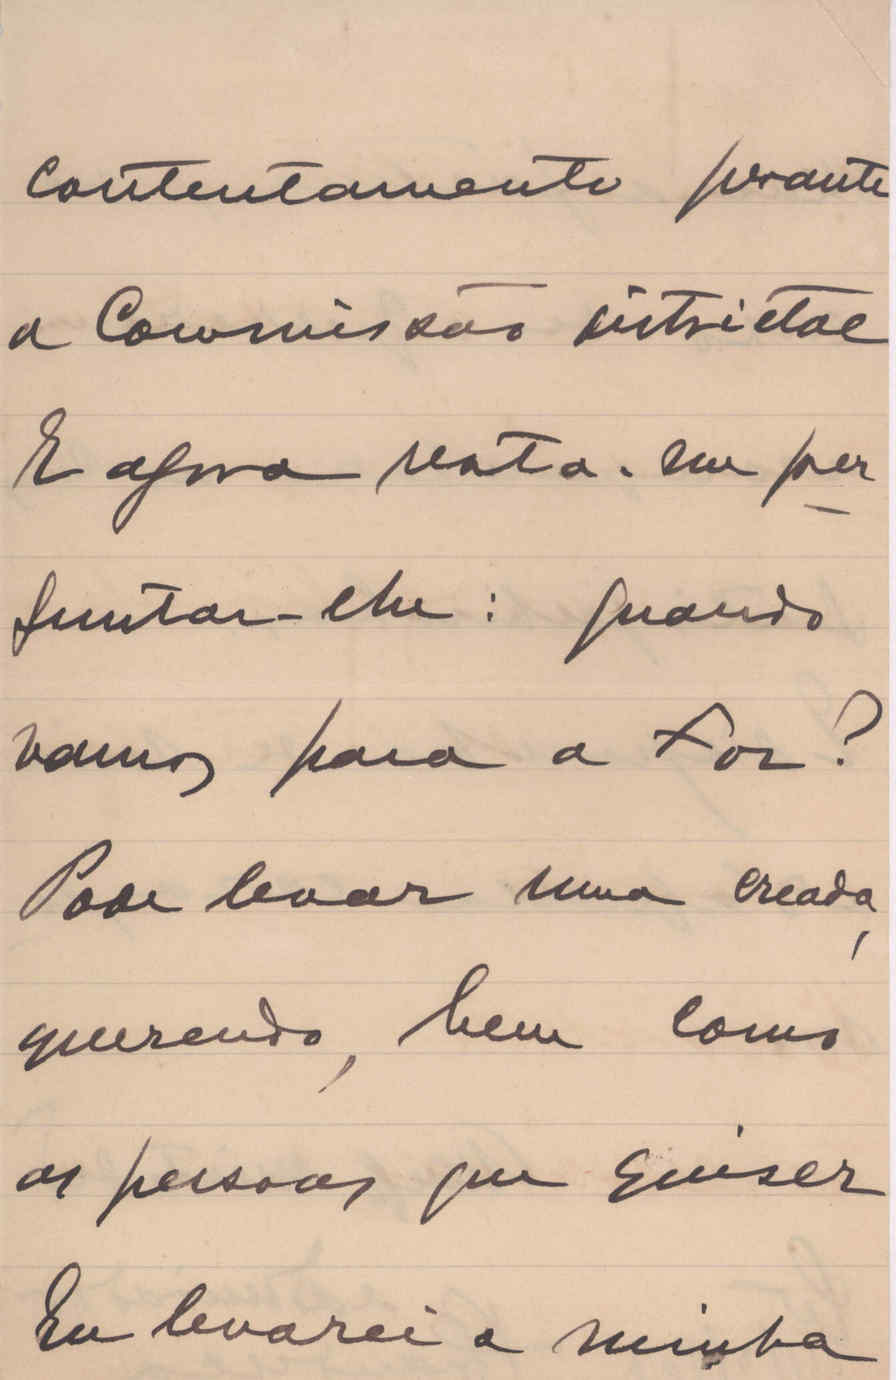 contentamento perante
a Commissão distrital
E agora resta-me per
guntar-lhe: quando
vamos para a Foz?
Pode levar uma creada,
querendo, bem como
as pessoas que quiser
Eu levarei a minha